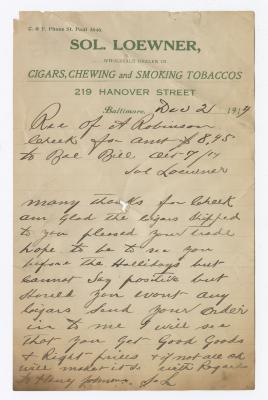 C. & P. Phone St. Paul
SOL. LOEWNER,
WHOLESALE DEALER IN
CIGARS, CHEWING and SMOKING TOBACCOS
219 HANOVER STREET
Baltimore, Dec 2 1914
Rec of A Robinson
Check for amt $ 8,95
to Bal Bill Oct 7/14
Sol Loewner
many thanks for Check
am Glad the Cigars shipped
to you pleased your trade
hope to be to see you
before the Hallidays but
Cannot Say positive but
should you want any
Cigars Send your Order
in to me I will see
that you Get Good Goods
& Right prices & if not all ok
will make it so with Regards
to Henry Sol